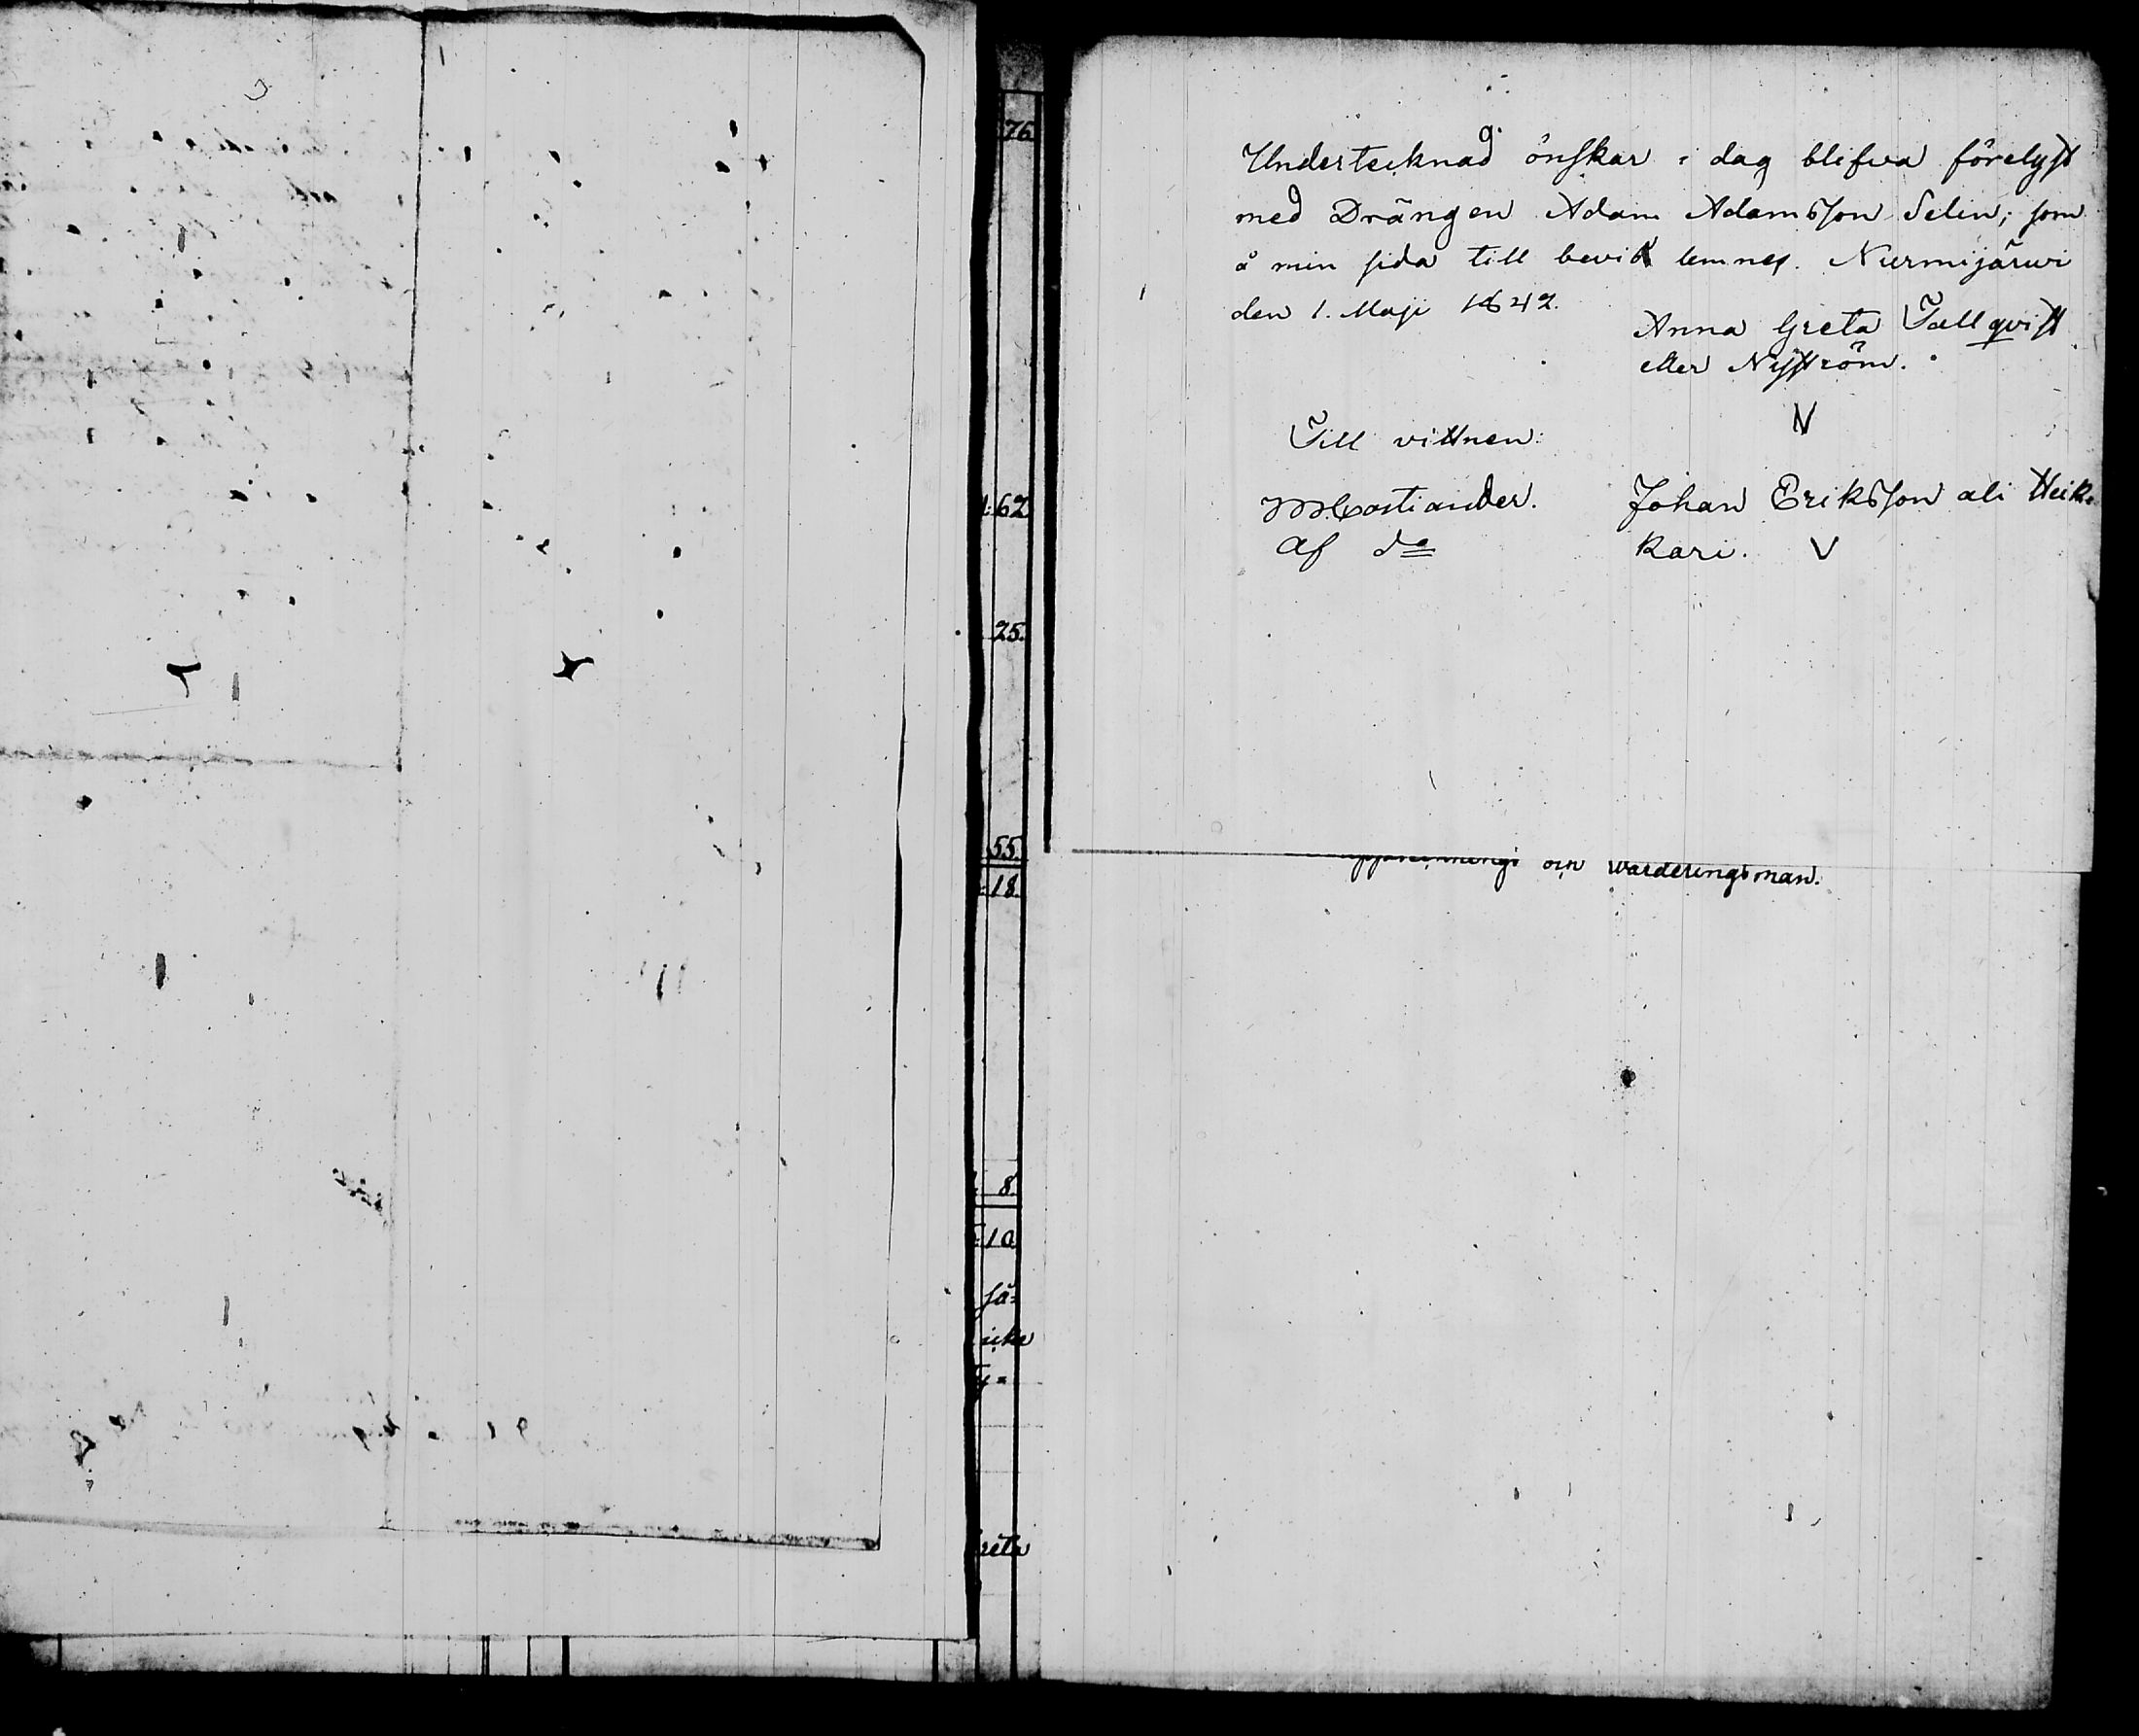 76
:62
25.
55.
:18.
8.
:10
så=
icke
reta
g.
Undertecknad önskar i dag blifva förelyst
med Drängen Adam Adamsson Selin; som
å min sida till bevis lemnes. Nurmijärwi
den 1. Maji 1842.
Anna Greta Tallqvist
eller Nyström.
N
Till vittnen:
Johan Eriksson ali Heik=
kari. V
af do
och Warderingsman.